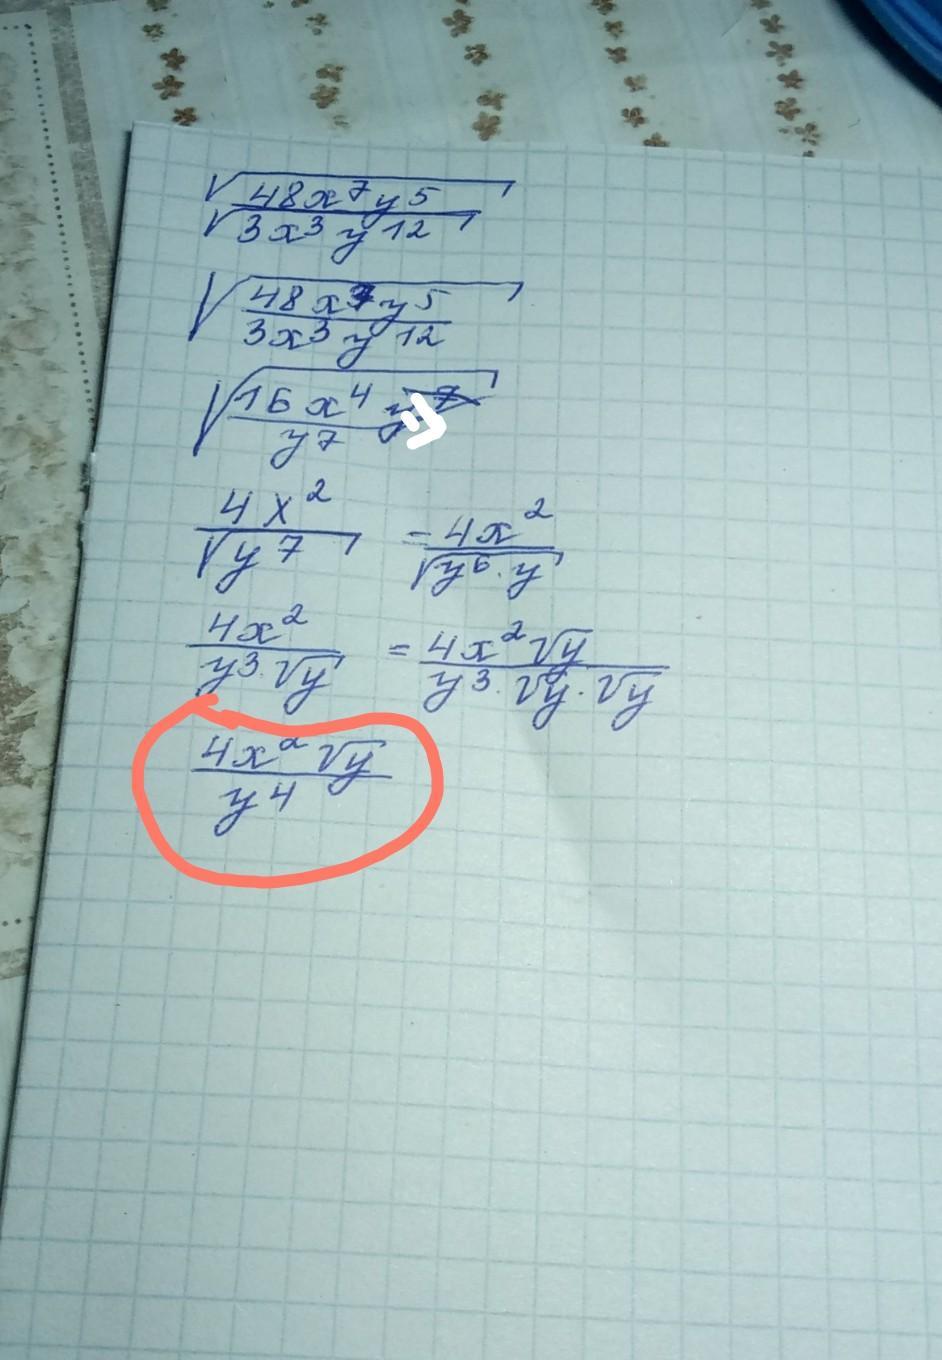 √48x⁷y5
√3x³y12
√48x⁷y5
3x³y12
√16x⁴
y7
4x²
√y7
= 4x²
√y⁶·y
4x²
y³·√y
= 4x²√y
y³·√y·√y
4x²√y
y⁴